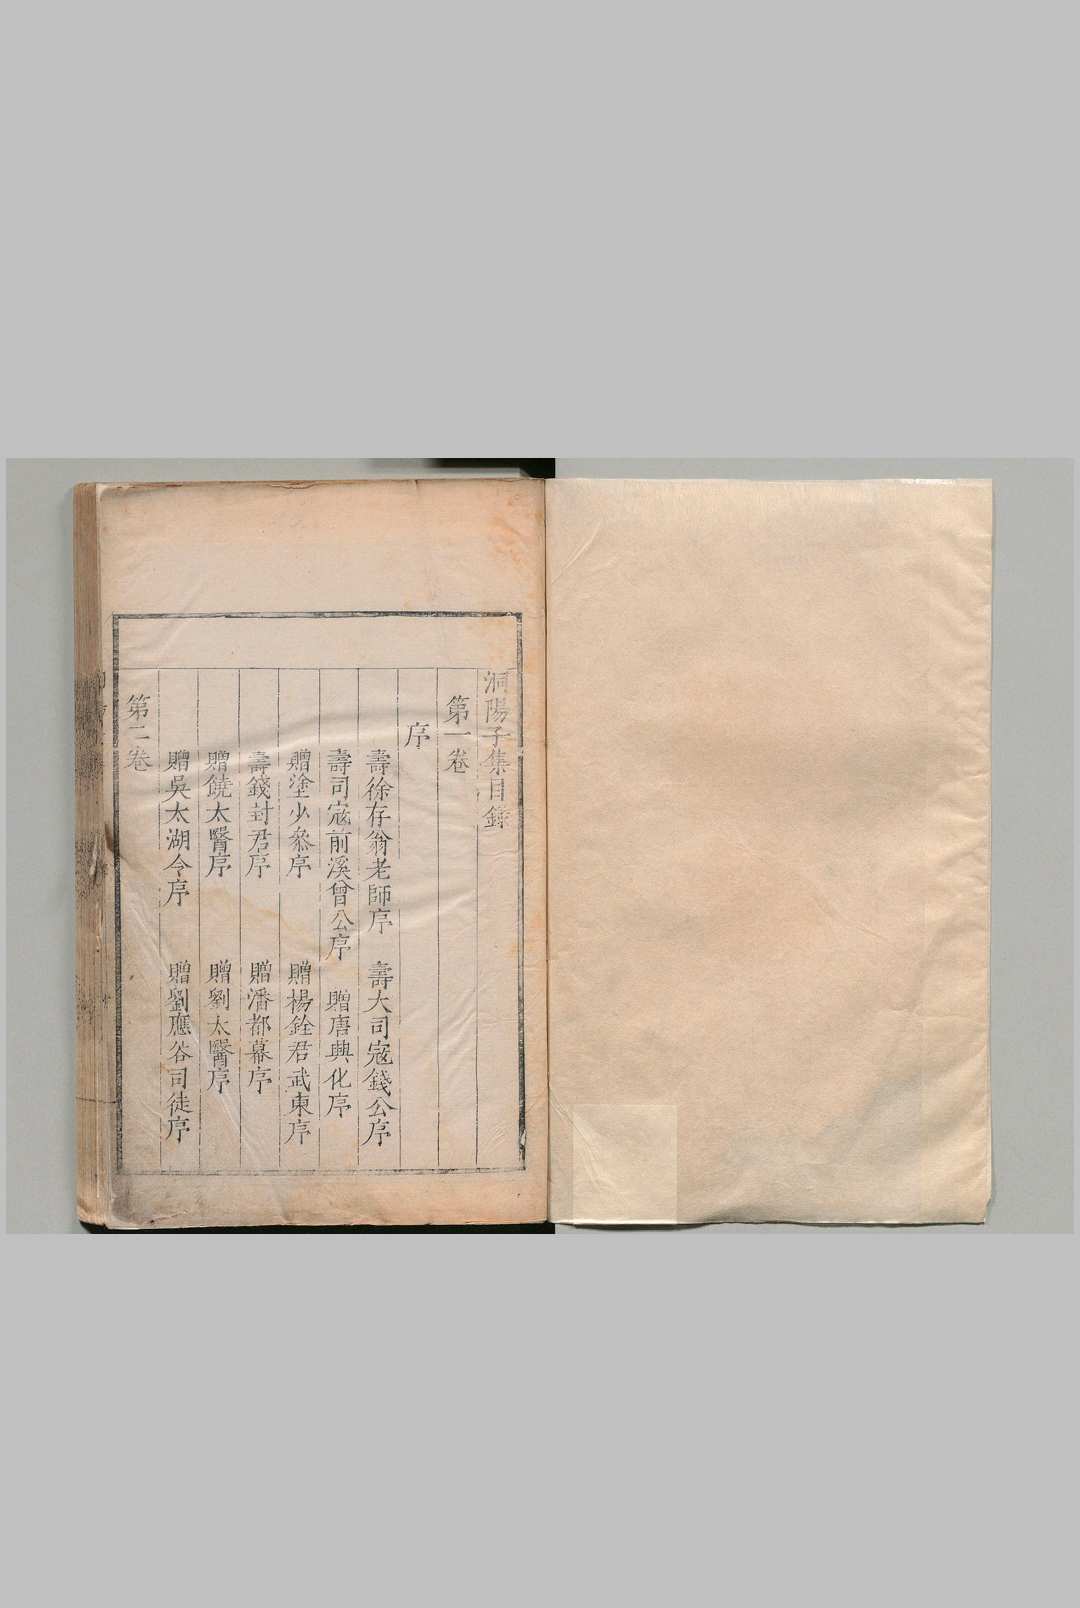 洞陽子集目錄
第一卷
序
壽徐存翁老師序　壽大司寇錢公序
壽司寇前溪曾公序　贈唐興化序
贈塗少叅序　贈楊銓君武東序
壽錢封君序　贈潘都幕序
贈饒太醫序　贈劉太醫序
贈吳太湖令序　贈劉應谷司徒序
第二卷